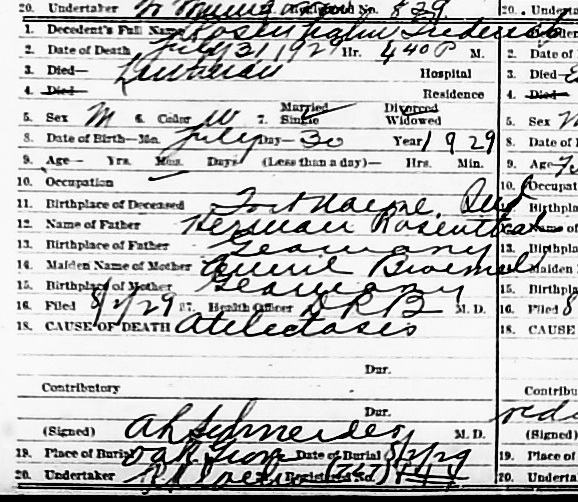 20. Undertaker No. 829 20. Undert
1. Decedent's Full Name Rosenthal Frederick 1.
2. Date of Death July 31 1929 Hr. 4 40 P M. 2. Date of
3. Died— Lutheran Hospital 3. Died—
4. Died— Residence 4. Died—
5. Sex M 6. Color W 7. Married Single Divorced Widowed 5. Sex
8. Date of Birth—Mo. July Day— 30 Year 1929 8. Date of
9. Age— Yrs. Mos. Days (Less than a day)— Hrs. Min. 9. Age
10. Occupation 10. Occupat
11. Birthplace of Deceased Fort Wayne, Ind 11. Birthpla
12. Name of Father Herman Rosenthal 12. Name of
13. Birthplace of Father Germany 13. Birthpla
14. Maiden Name of Mother 14. Maiden
15. Birthplace of Mother Germany 15. Birthpla
16. Filed 8/2/29 17. Health Officer D R B M. D. 16. Filed 8
18. CAUSE OF DEATH Atelectasis 18. CAUSE
Dur.
Contributory Contribu
Dur.
(Signed) A H Schneider M. D. (Signed)
19. Place of Burial Date of Burial 8/2/29 19. Place of
20. Undertaker Registered No. (767) 20. Undert